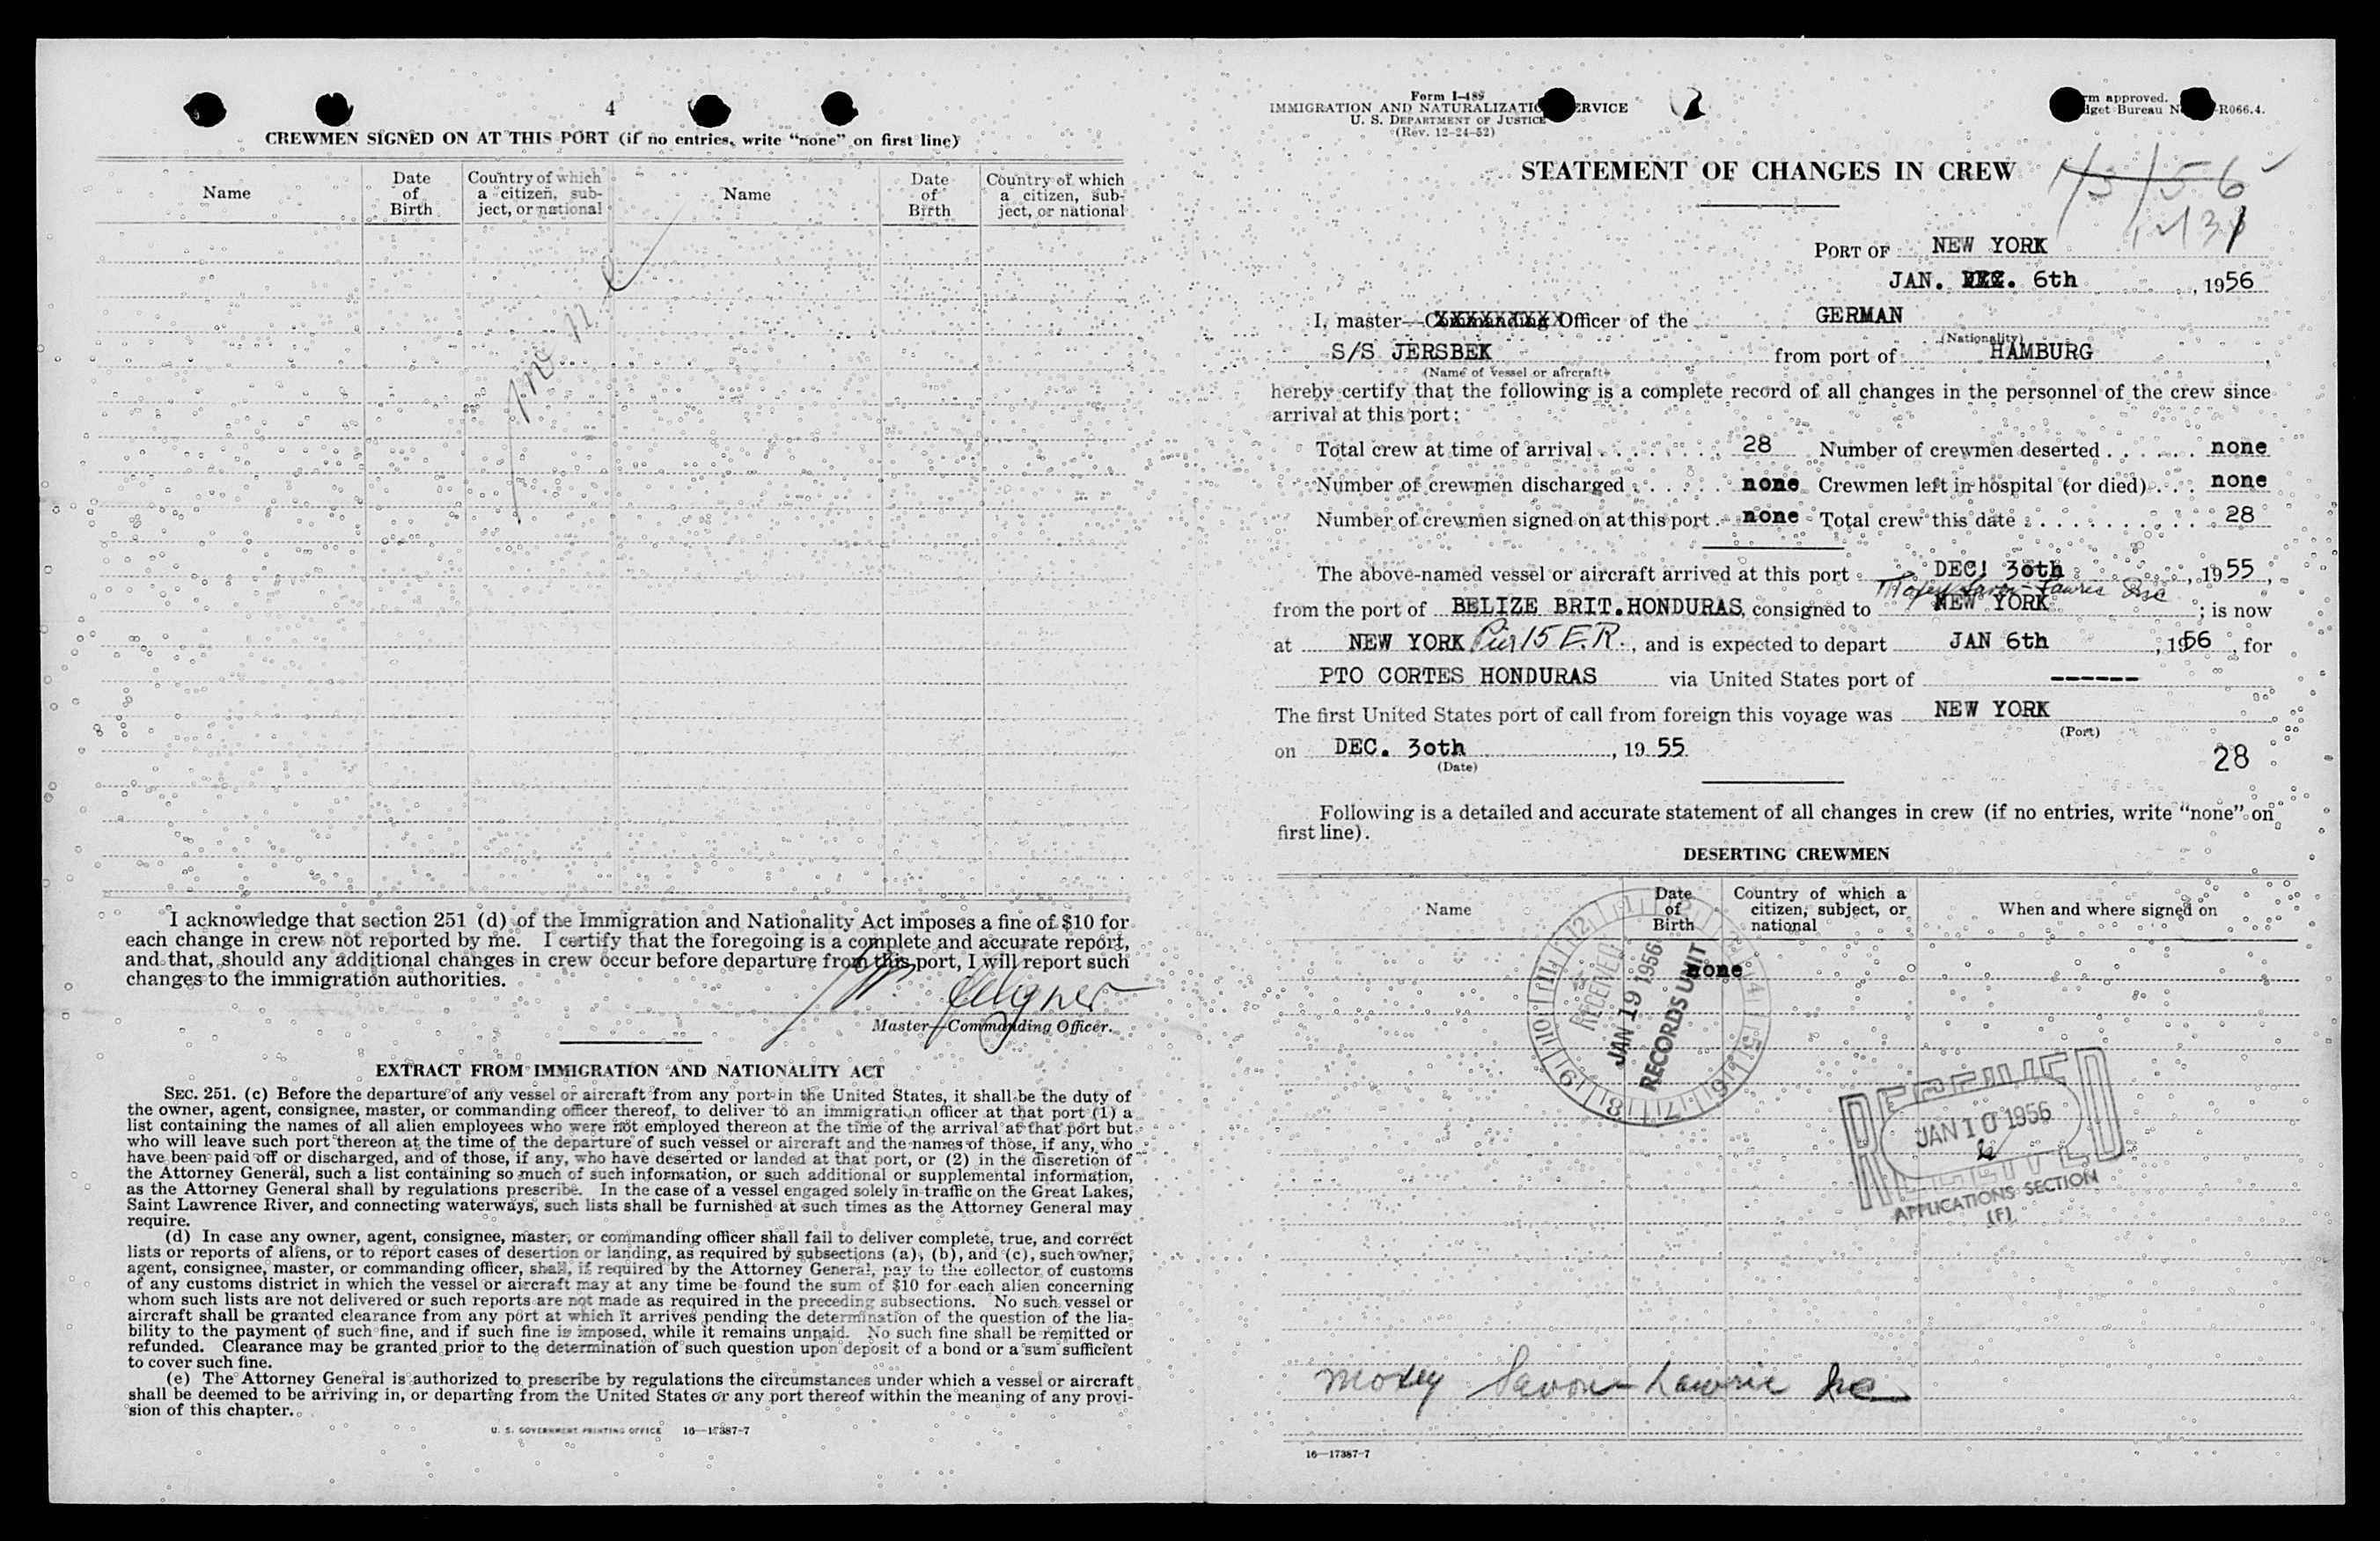 4
CREWMEN SIGNED ON AT THIS PORT (if no entries, write “none” on first line)
Name
Date of Birth
Country of which a citizen, subject, or national
Name
Date of Birth
Country of which a citizen, subject, or national
none
I acknowledge that section 251 (d) of the Immigration and Nationality Act imposes a fine of $10 for
each change in crew not reported by me. I certify that the foregoing is a complete and accurate report,
and that, should any additional changes in crew occur before departure from this port, I will report such
changes to the immigration authorities.
Master—Commanding Officer.
EXTRACT FROM IMMIGRATION AND NATIONALITY ACT
SEC. 251. (c) Before the departure of any vessel or aircraft from any port in the United States, it shall be the duty of
the owner, agent, consignee, master, or commanding officer thereof, to deliver to an immigration officer at that port (1) a
list containing the names of all alien employees who were not employed thereon at the time of the arrival at that port but
who will leave such port thereon at the time of the departure of such vessel or aircraft and the names of those, if any, who
have been paid off or discharged, and of those, if any, who have deserted or landed at that port, or (2) in the discretion of
the Attorney General, such a list containing so much of such information, or such additional or supplemental information,
as the Attorney General shall by regulations prescribe. In the case of a vessel engaged solely in traffic on the Great Lakes,
Saint Lawrence River, and connecting waterways, such lists shall be furnished at such times as the Attorney General may
require.
(d) In case any owner, agent, consignee, master, or commanding officer shall fail to deliver complete, true, and correct
lists or reports of aliens, or to report cases of desertion or landing, as required by subsections (a), (b), and (c), such owner,
agent, consignee, master, or commanding officer, shall, if required by the Attorney General, pay to the collector of customs
of any customs district in which the vessel or aircraft may at any time be found the sum of $10 for each alien concerning
whom such lists are not delivered or such reports are not made as required in the preceding subsections. No such vessel or
aircraft shall be granted clearance from any port at which it arrives pending the determination of the question of the lia-
bility to the payment of such fine, and if such fine is imposed, while it remains unpaid. No such fine shall be remitted or
refunded. Clearance may be granted prior to the determination of such question upon deposit of a bond or a sum sufficient
to cover such fine.
(e) The Attorney General is authorized to prescribe by regulations the circumstances under which a vessel or aircraft
shall be deemed to be arriving in, or departing from the United States or any port thereof within the meaning of any provi-
sion of this chapter.
U. S. GOVERNMENT PRINTING OFFICE 16—17387-7
Form I-489
IMMIGRATION AND NATURALIZATION SERVICE
U. S. DEPARTMENT OF JUSTICE
(Rev. 12-24-52)
approved.
Bureau R066.4.
STATEMENT OF CHANGES IN CREW
PORT OF NEW YORK
JAN. DEC. 6th, 1956
I, master—Commanding Officer of the GERMAN
(Nationality)
S/S JERSBEK from port of HAMBURG,
(Name of vessel or aircraft)
hereby certify that the following is a complete record of all changes in the personnel of the crew since
arrival at this port:
Total crew at time of arrival 28 Number of crewmen deserted none
Number of crewmen discharged none Crewmen left in hospital (or died) none
Number of crewmen signed on at this port none Total crew this date 28
The above-named vessel or aircraft arrived at this port DEC! 3oth, 1955,
from the port of BELIZE BRIT.HONDURAS, consigned to NEW YORK; is now
at NEW YORK Pier 15 E.R., and is expected to depart JAN 6th, 1956, for
PTO CORTES HONDURAS via United States port of ------
The first United States port of call from foreign this voyage was NEW YORK
(Port)
on DEC. 3oth, 1955
(Date)
28
Following is a detailed and accurate statement of all changes in crew (if no entries, write “none” on
first line).
DESERTING CREWMEN
Name
Date of Birth
Country of which a citizen, subject, or national
When and where signed on
none
RECEIVED
JAN 19 1956
RECORDS UNIT
RECEIVED
JAN 10 1956
APPLICATIONS SECTION
(F)
Moxey Savon-Lawrie Inc
16—17387-7